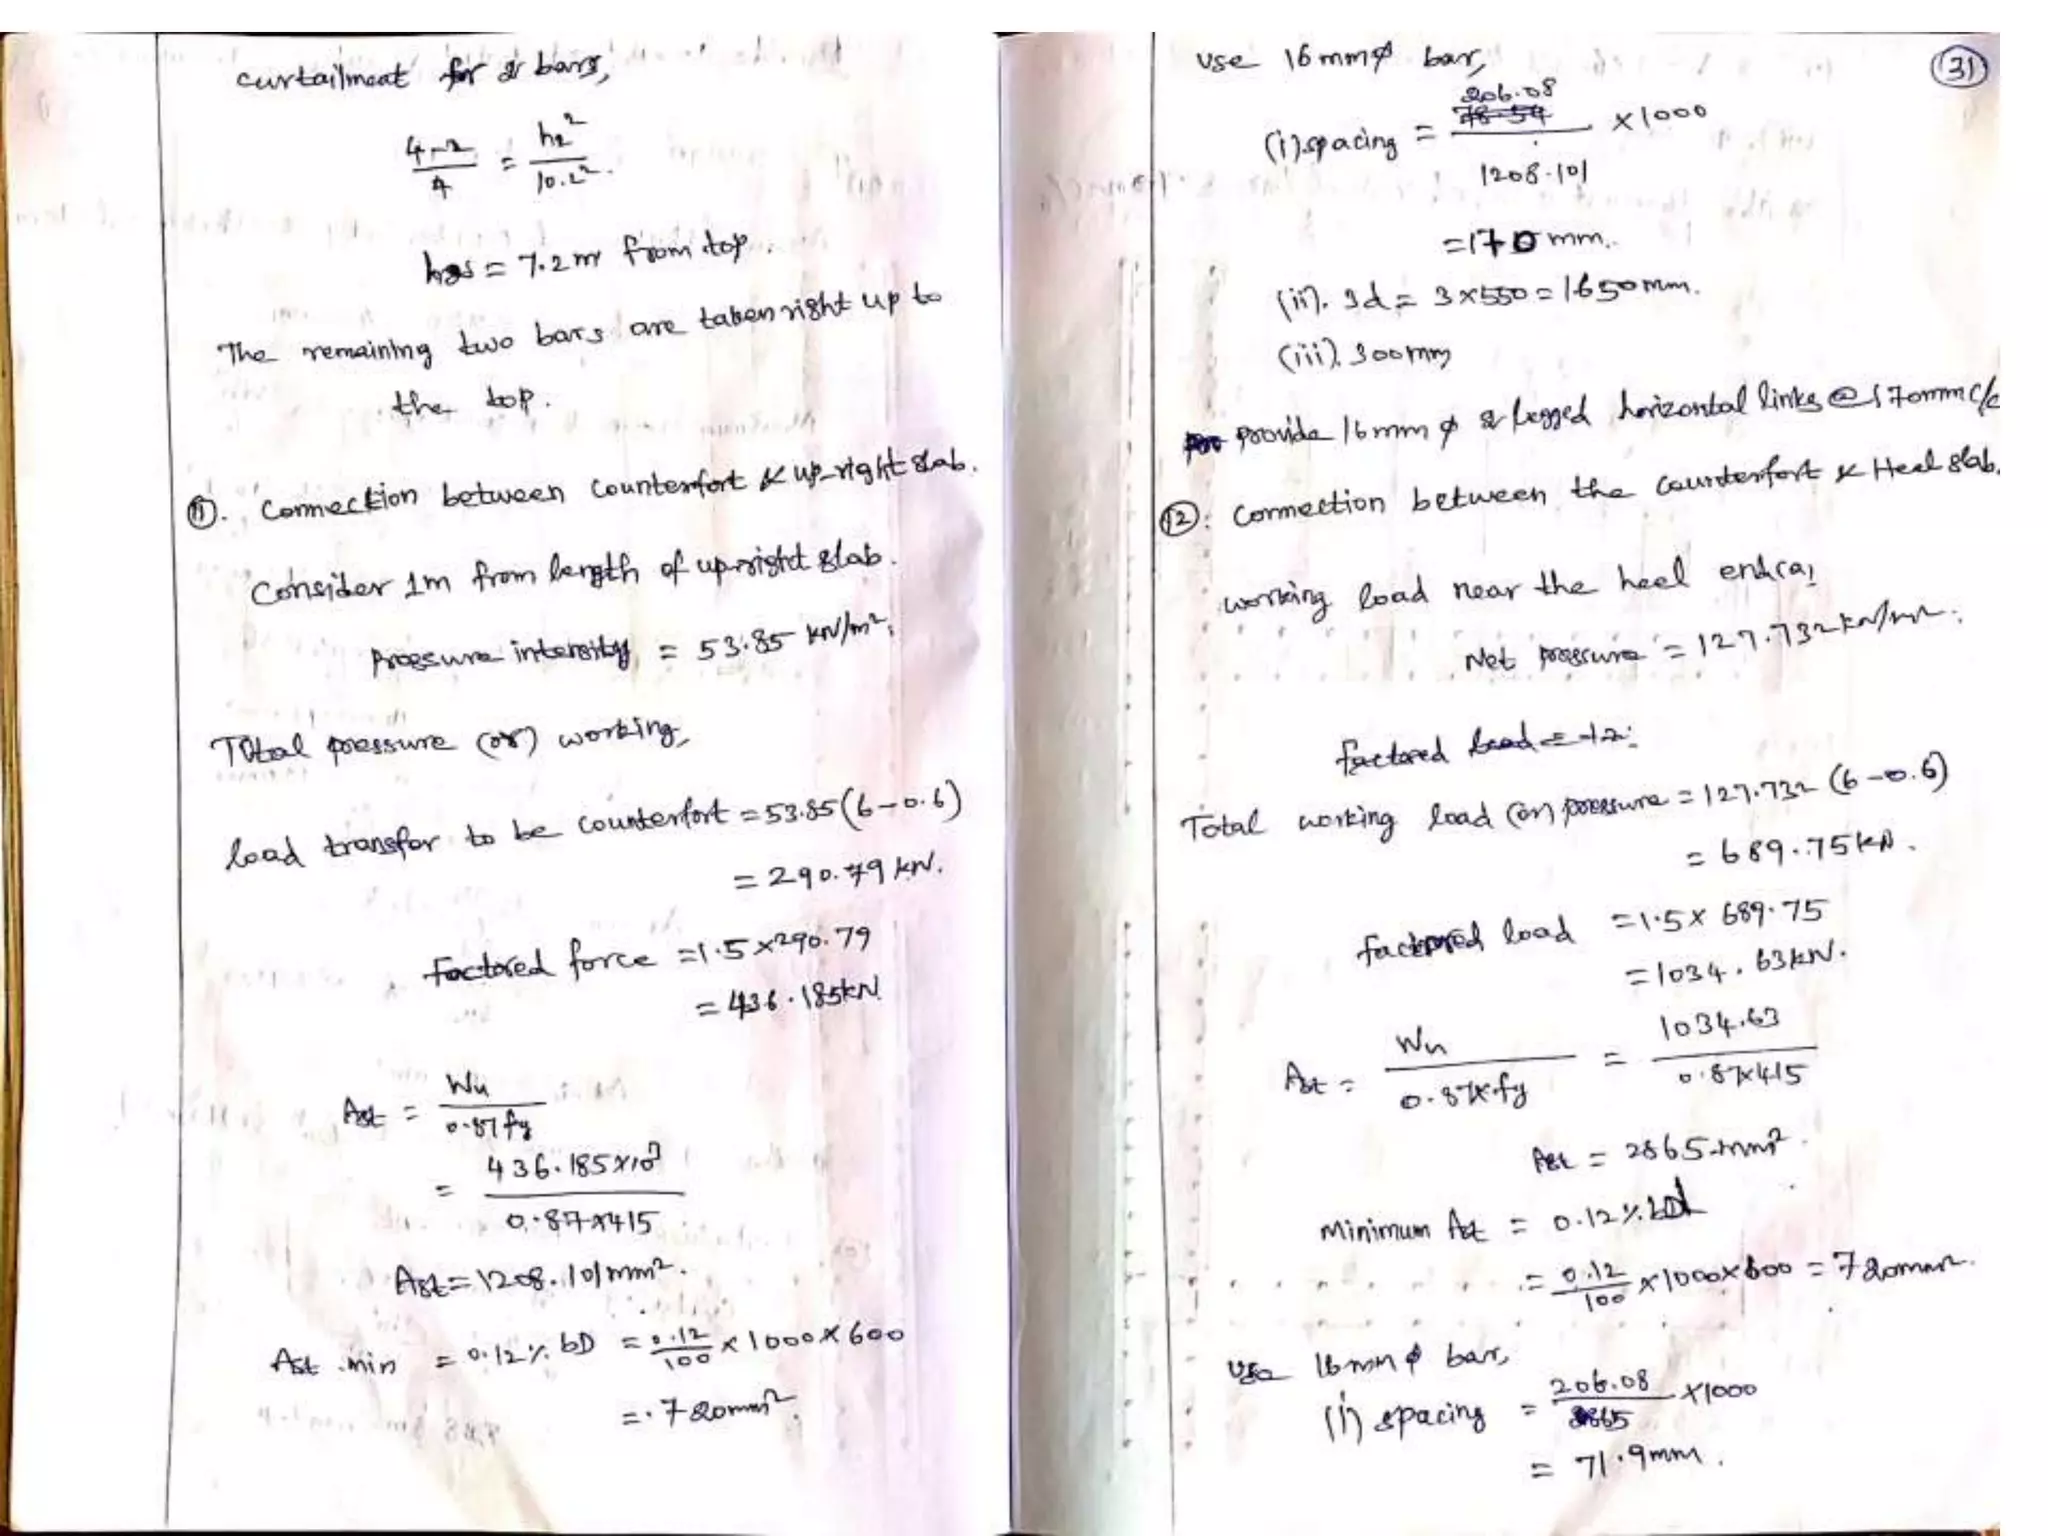 curtailment for 2 bars,
4-2/4 = h2²/10.2².
h2s = 7.2m from top.
The remaining two bars are taken right up to
the top.
⑪. Connection between counterfort & up-right slab.
Consider 1m from length of upright slab.
pressure intensity = 53.85 kN/m².
Total pressure (or) working,
load transfer to be counterfort = 53.85(6-0.6)
= 290.79 kN.
Factored force = 1.5×290.79
= 436.185kN
Ast = Wu/0.87fy
= 436.185×10³/0.87×415
Ast = 1208.101mm².
Ast min = 0.12% bD = 0.12/100 × 1000×600
= 720mm².
31
use 16mmφ bar,
(i) spacing = 206.08/1208.101 ×1000
= 170 mm.
(ii). 3d = 3×550 = 1650mm.
(iii). 300mm
provide 16mm φ 2 legged horizontal links @ 170mm c/c
⑫. Connection between the counterfort & Heel slab.
working load near the heel end(a)
Net pressure = 127.732kN/m².
factored load = 12.
Total working load (or) pressure = 127.732 (6-0.6)
= 689.75kN.
factored load = 1.5× 689.75
= 1034.63kN.
Ast = Wu/0.87×fy = 1034.63/0.87×415
Ast = 2865mm².
Minimum Ast = 0.12% bD
= 0.12/100 ×1000×600 = 720mm².
Use 16mm φ bar,
(i) spacing = 206.08/2865 ×1000
= 71.9mm.